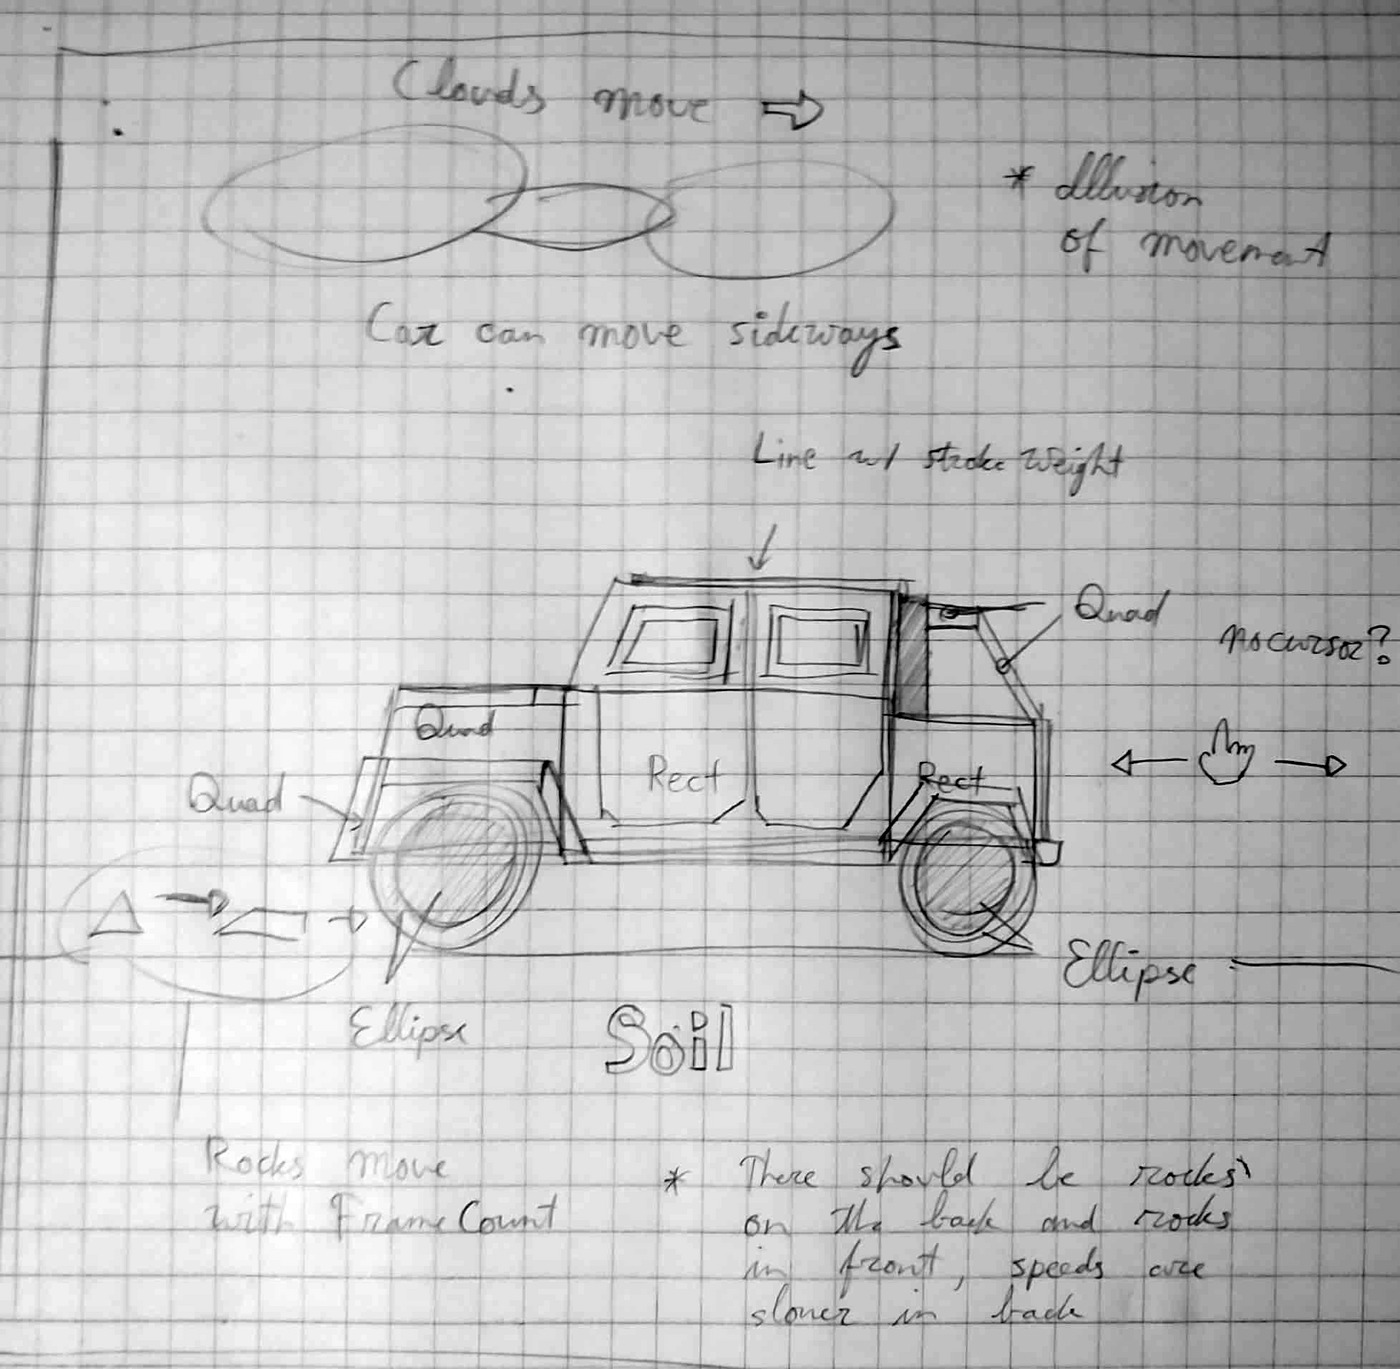 Clouds move
* Illusion
of movement
Car can move sideways
Line w/ stroke weight
Quad
nocursor?
Quad
Rect
Rect
Quad
Ellipse
Ellipse
Soil
Rocks move
with FrameCount
* There should be rocks
on the back and rocks
in front, speeds are
slower in back